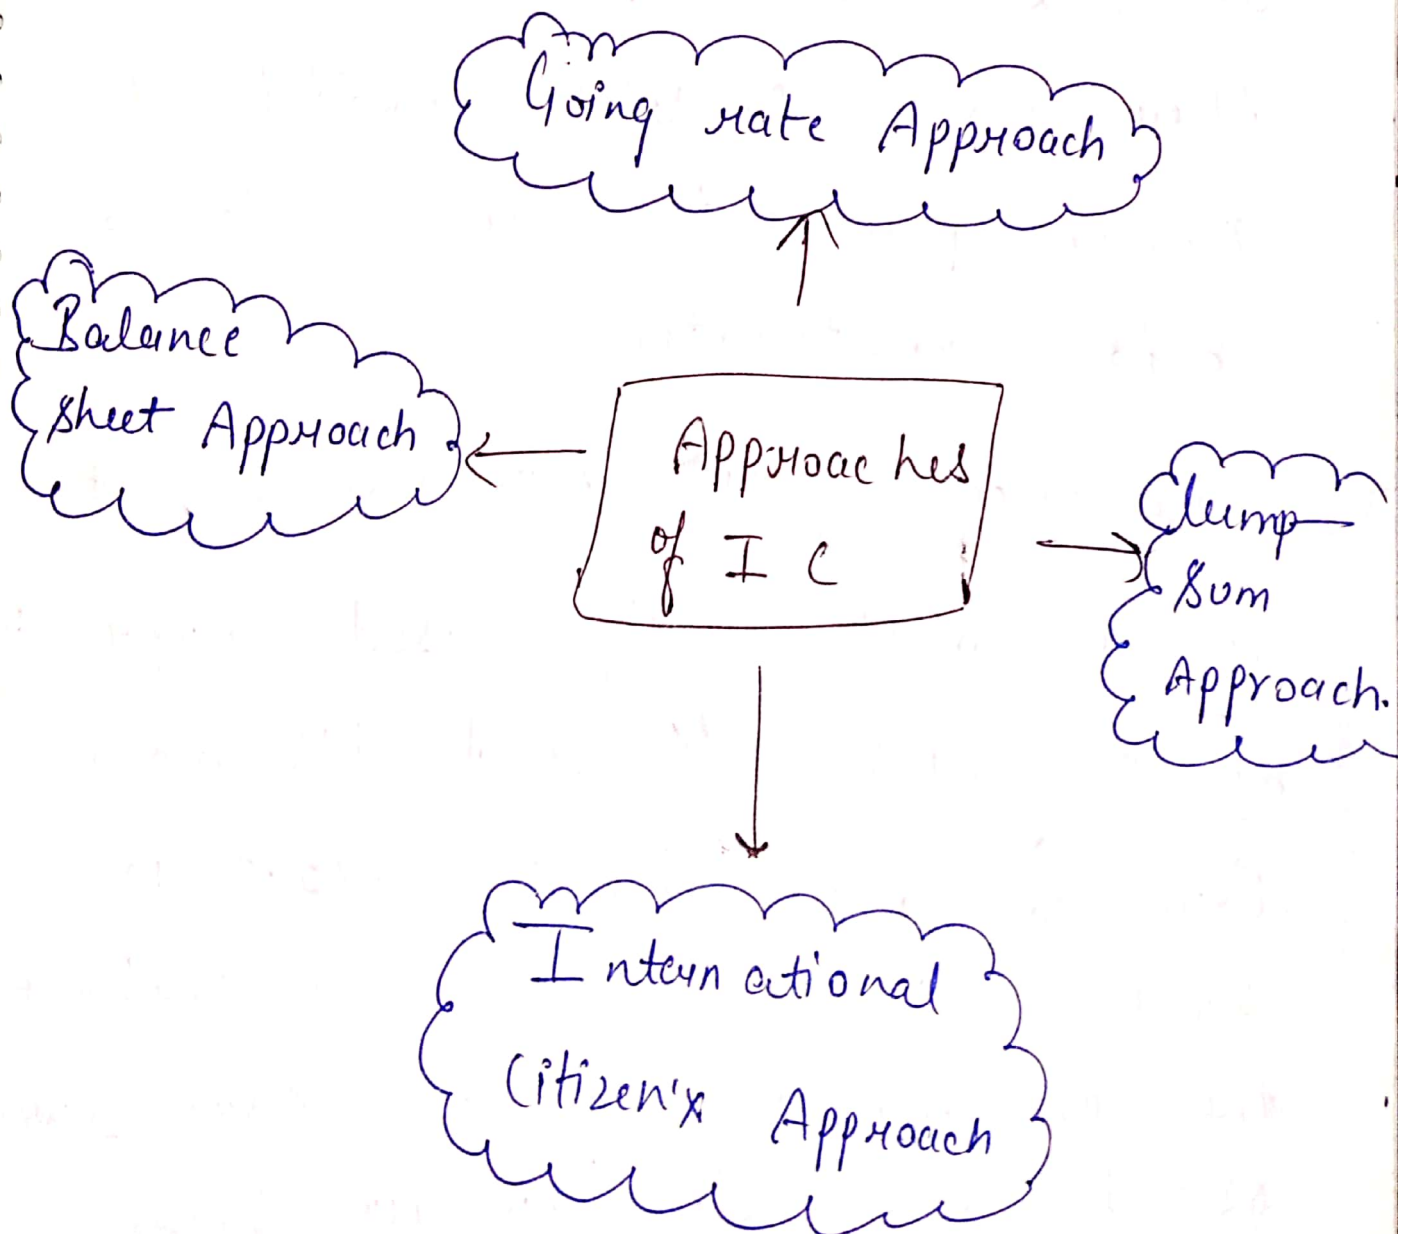 Going rate Approach
Balance
sheet Approach
Approaches
of I C
lump
sum
Approach.
International
Citizen's Approach